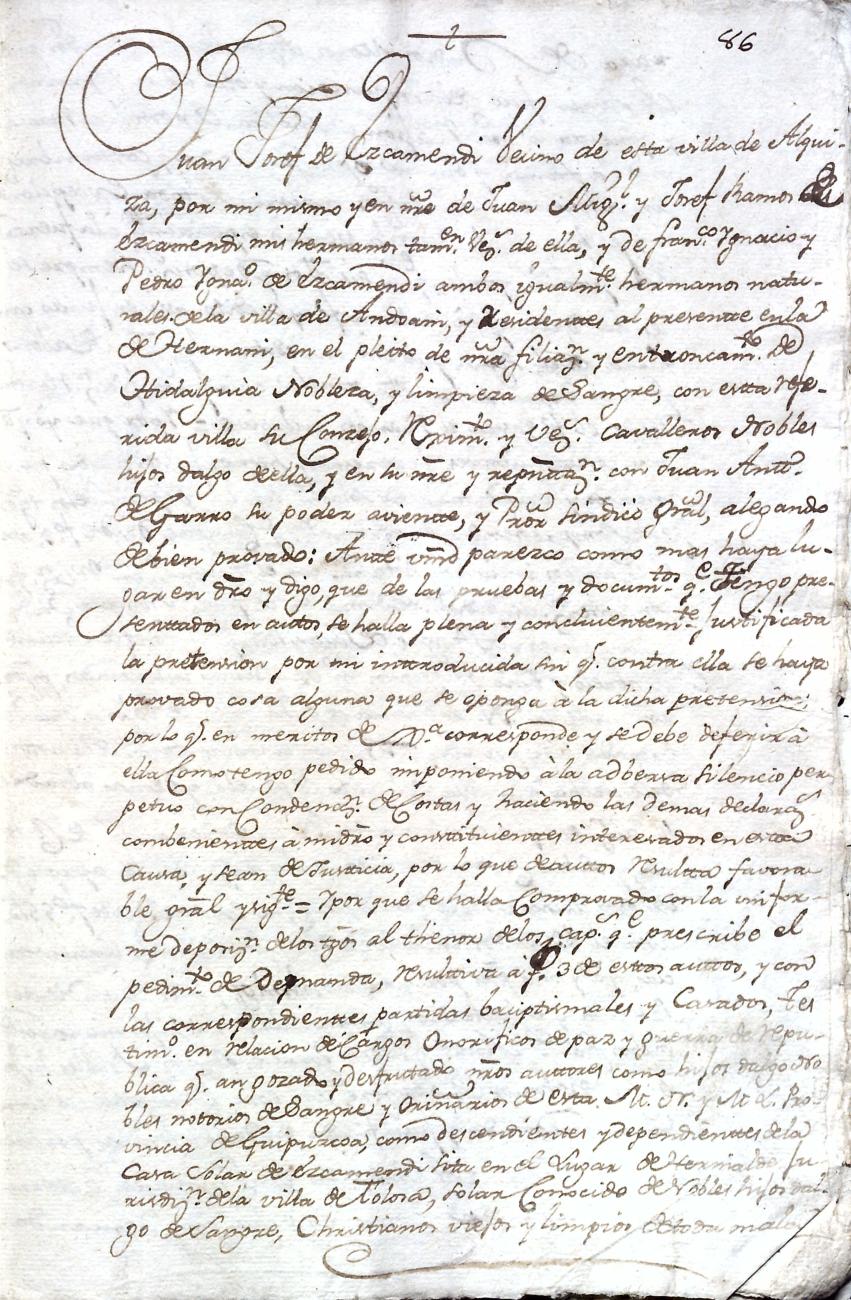 86
Juan Josef de Ezcamendi Vecino de esta villa de Alqui-
za, por mi mismo y en nre de Juan Migl. y Josef Ramos de
Ezcamendi mis hermanos tamen. Vezs. de ella, y de franco. Ygnacio y
Pedro Ygnao. de Ezcamendi ambos igualmte. hermanos natu-
rales de la villa de Andoain, y Residenttes al presentte en la
de Hernani, en el pleito de nra filiazn. y entroncamto. de
Hidalguia Nobleza, y limpieza de Sangre, con estta refe-
rida villa su Conzejo, Rexims. y Vezs. Cavalleros Nobles
hijos dalgo de ella, y en su nre y repnttazn. con Juan Antto.
de Garro su poder avientte, y Pror Sindico Gral, alegando
de bien provado: Ante vmd parezco como mas haya lu-
gar en dro y digo, que de las pruebas y documtos. qe. tengo pre-
senttados en auttos, se halla plena y concluientemte. Justificada
la pretension por mi inttroducida sin q. contra ella se haya
provado cosa alguna que se oponga à la dicha pretension;
por lo q. en meritos de Jxa. corresponde y se debe deferir à
ella Como tengo pedido imponiendo à la adbersa silencio per-
petuo con Condenazn. de Costas y haciendo las demas declarazs.
combenienttes à mi dro y constituienttes interesados en estta
Causa, y sean de Justicia, por lo que de auttos resultta favora-
ble gral y sigte. = Y por que se halla Comprovado con la unifor-
me deposizn. de los tgos al thenor de los caps. qe. prescribe el
pedimto. de Demanda, resultiva a f. 3 de esttos auttos, y con
las correspondienttes partidas bauptismales y Casados, Tes
timo. en relacion de Cargos Onorificos de paz y guerra de Repu-
blica q. an gozado y desfrutado nros auttores como hijos dalgo No
bles notorios de Sangre y Orixnarios de esta. M. N. y M. L. Pro-
vincia de Guipuzcoa, como descendientes y dependienttes de la
Casa Solar de Ezcamendi sita en el Lugar de Hernialde Ju-
risdizn. de la villa de Tolosa, solar Conocido de Nobles hijos dal-
go de Sangre, Christianos viejos y limpios de toda mala